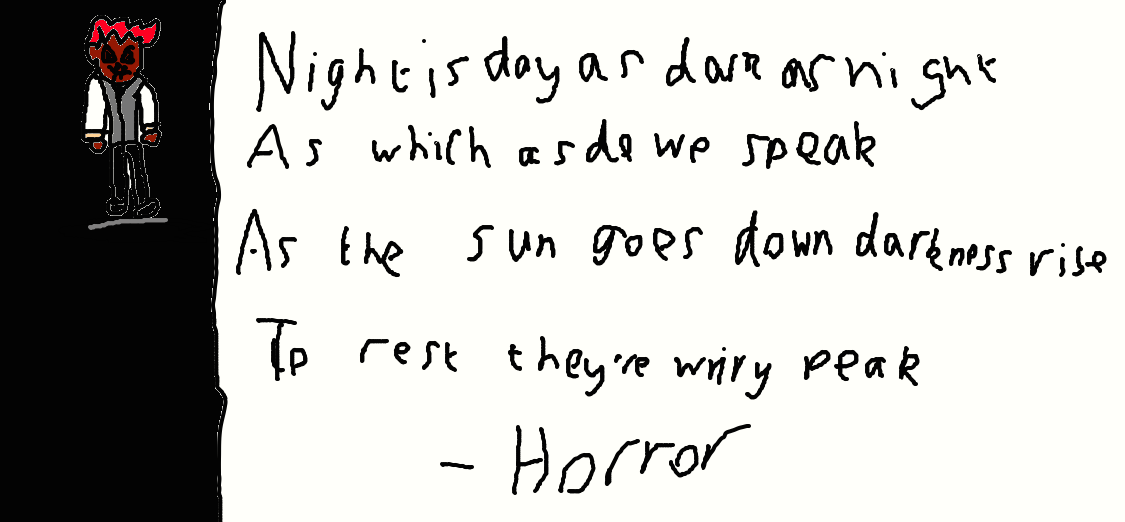 Night is day as dark as night
As which as do we speak
As the sun goes down darkness rise
To rest they're wriry peak
- Horror